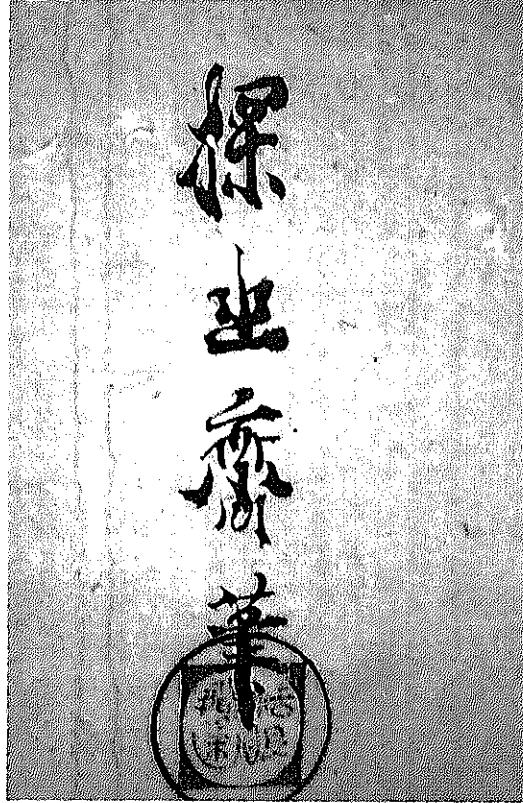 探幽齋筆